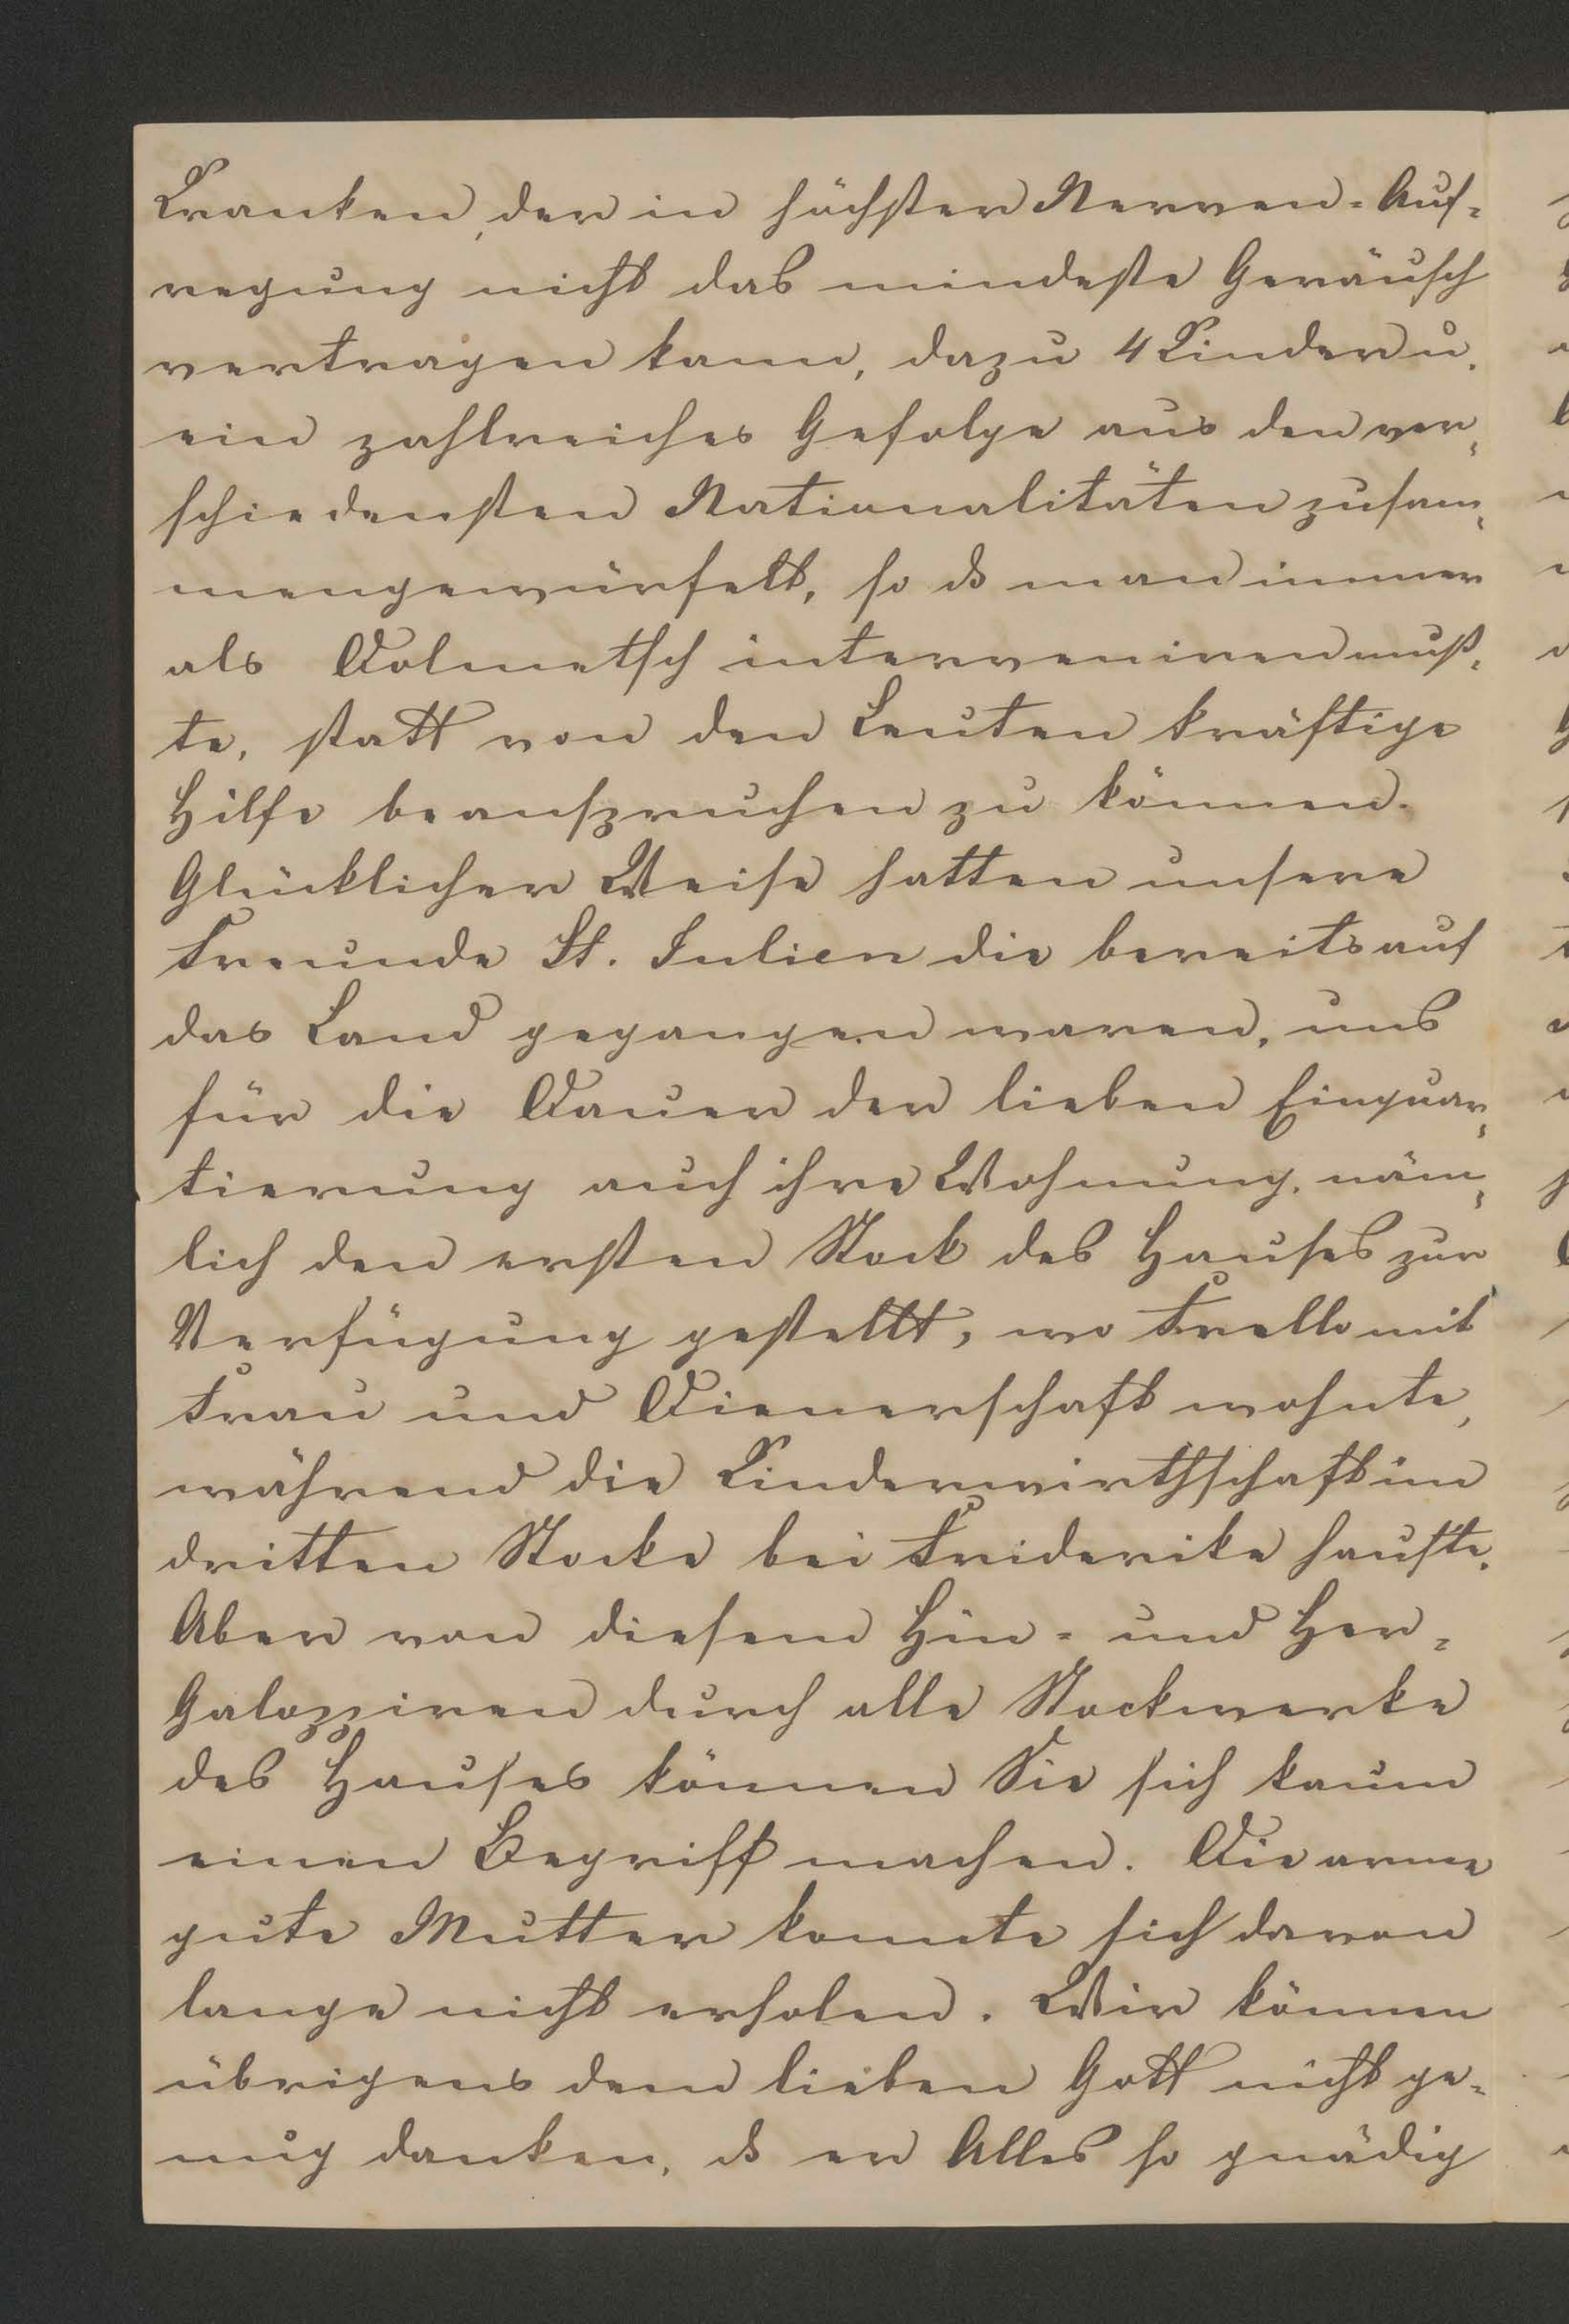 Kranken, der in höchster Nerven-Auf-
regung nicht das mindeste Geräusch
vertragen kann, dazu 4 Kinder u.
ein zahlreiches Gefolge aus den ver-
schiedensten Nationalitäten zusam-
mengewürfelt, so ds man immer
als Dolmetsch interveniren muß-
te, statt von den Leuten kräftige
Hilfe beanspruchen zu können.
Glücklicher Weise hatten unsere
Freunde St. Julien die bereits auf
das Land gegangen waren, uns
für die Dauer der lieben Einquar-
tierung auch ihre Wohnung, näm-
lich den ersten Stock des Hauses zur
Verfügung gestellt, wo Trello mit
Frau und Dienerschaft wohnte,
während die Kinderwirthschaft im
dritten Stocke bei Friderike hauste.
Aber von diesem Hin- und Her-
Galoppiren durch alle Stockwerke
des Hauses können Sie sich kaum
einen Begriff machen. Die arme
gute Mutter konnte sich davon
lange nicht erholen. Wir können
übrigens dem lieben Gott nicht ge-
nug danken, ds er Alles so gnädig